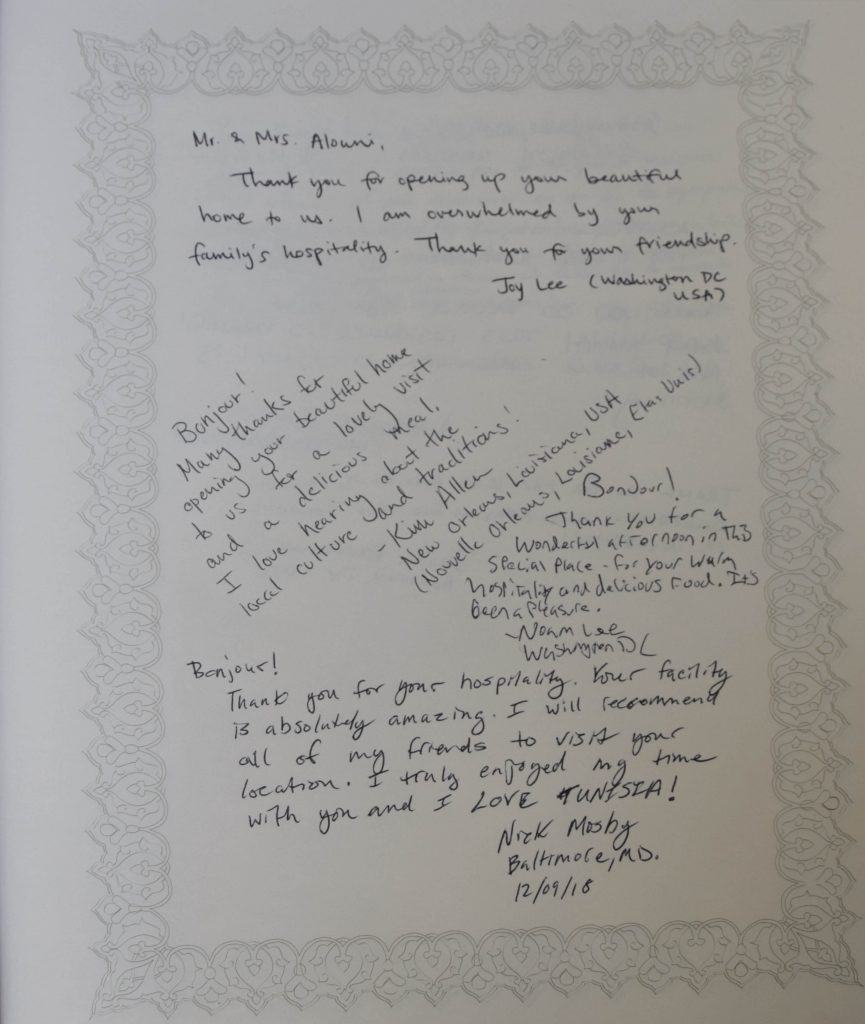 Mr. & Mrs. Alouini,
Thank you for opening up your beautiful
home to us. I am overwhelmed by your
family's hospitality. Thank you for your friendship.
Joy Lee (Washington DC
USA)
Bonjour!
Many thanks for
opening your beautiful home
to us for a lovely visit
and a delicious meal.
I love hearing about the
local culture and traditions!
- Kim Allen
New Orleans, Louisiana, USA
(Nouvelle Orleans, Louisiane, Etas Unis)
Bonjour!
Thank you for a
wonderful afternoon in this
special place - for your warm
hospitality and delicious food. It's
been a pleasure.
-Noam Lee
Washington DC
Bonjour!
Thank you for your hospitality. Your facility
is absolutely amazing. I will recommend
all of my friends to visit your
location. I truly enjoyed my time
with you and I LOVE TUNISIA!
Nick Mosby
Baltimore, MD.
12/09/18